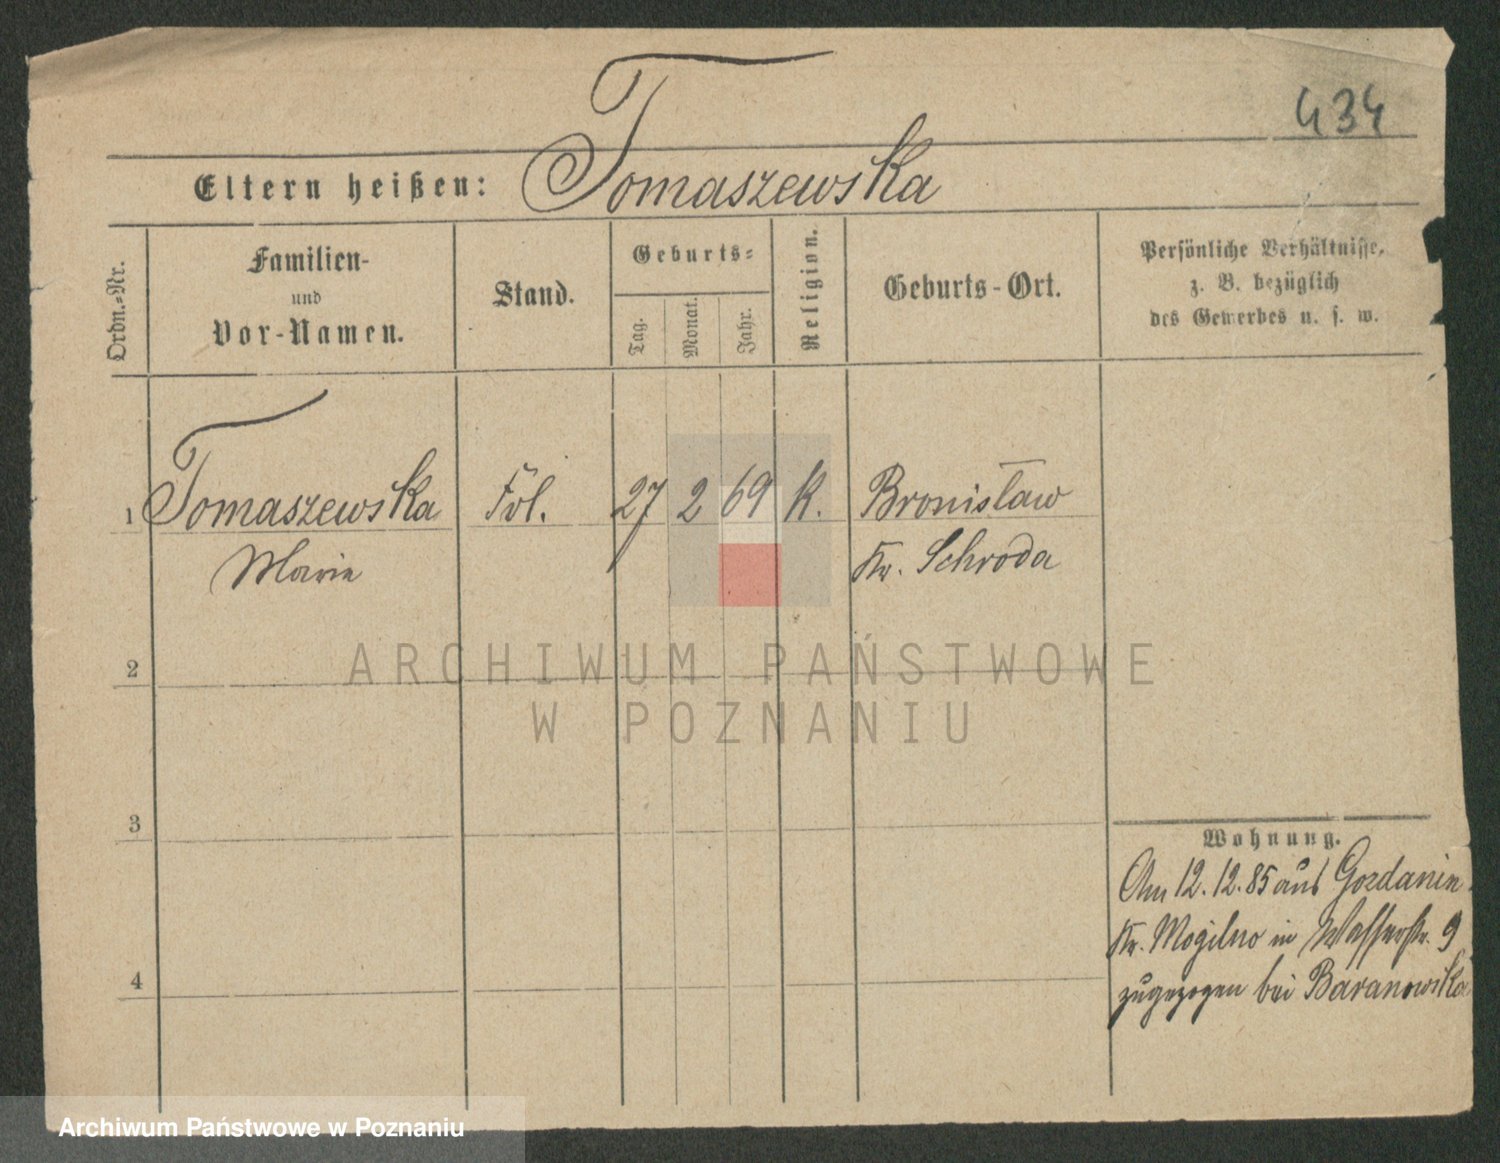 434
Eltern heißen: Tomaszewska
Ordn.=Nr.
Familien-
und
Vor-Namen.
Stand.
Geburts=
Tag.
Monat.
Jahr.
Religion.
Geburts-Ort.
Persönliche Verhältnisse,
z. B. bezüglich
des Gewerbes u. s. w.
1 Tomaszewska Frl. 27 2 69 K. Bronisław
Marie Kr. Schroda
2
ARCHIWUM PAŃSTWOWE
W POZNANIU
3
Wohnung.
Am 12.12.85 aus Gozdanin
Kr. Mogilno in Wasserstr. 9
zugezogen bei Baranowska
4
Archiwum Państwowe w Poznaniu